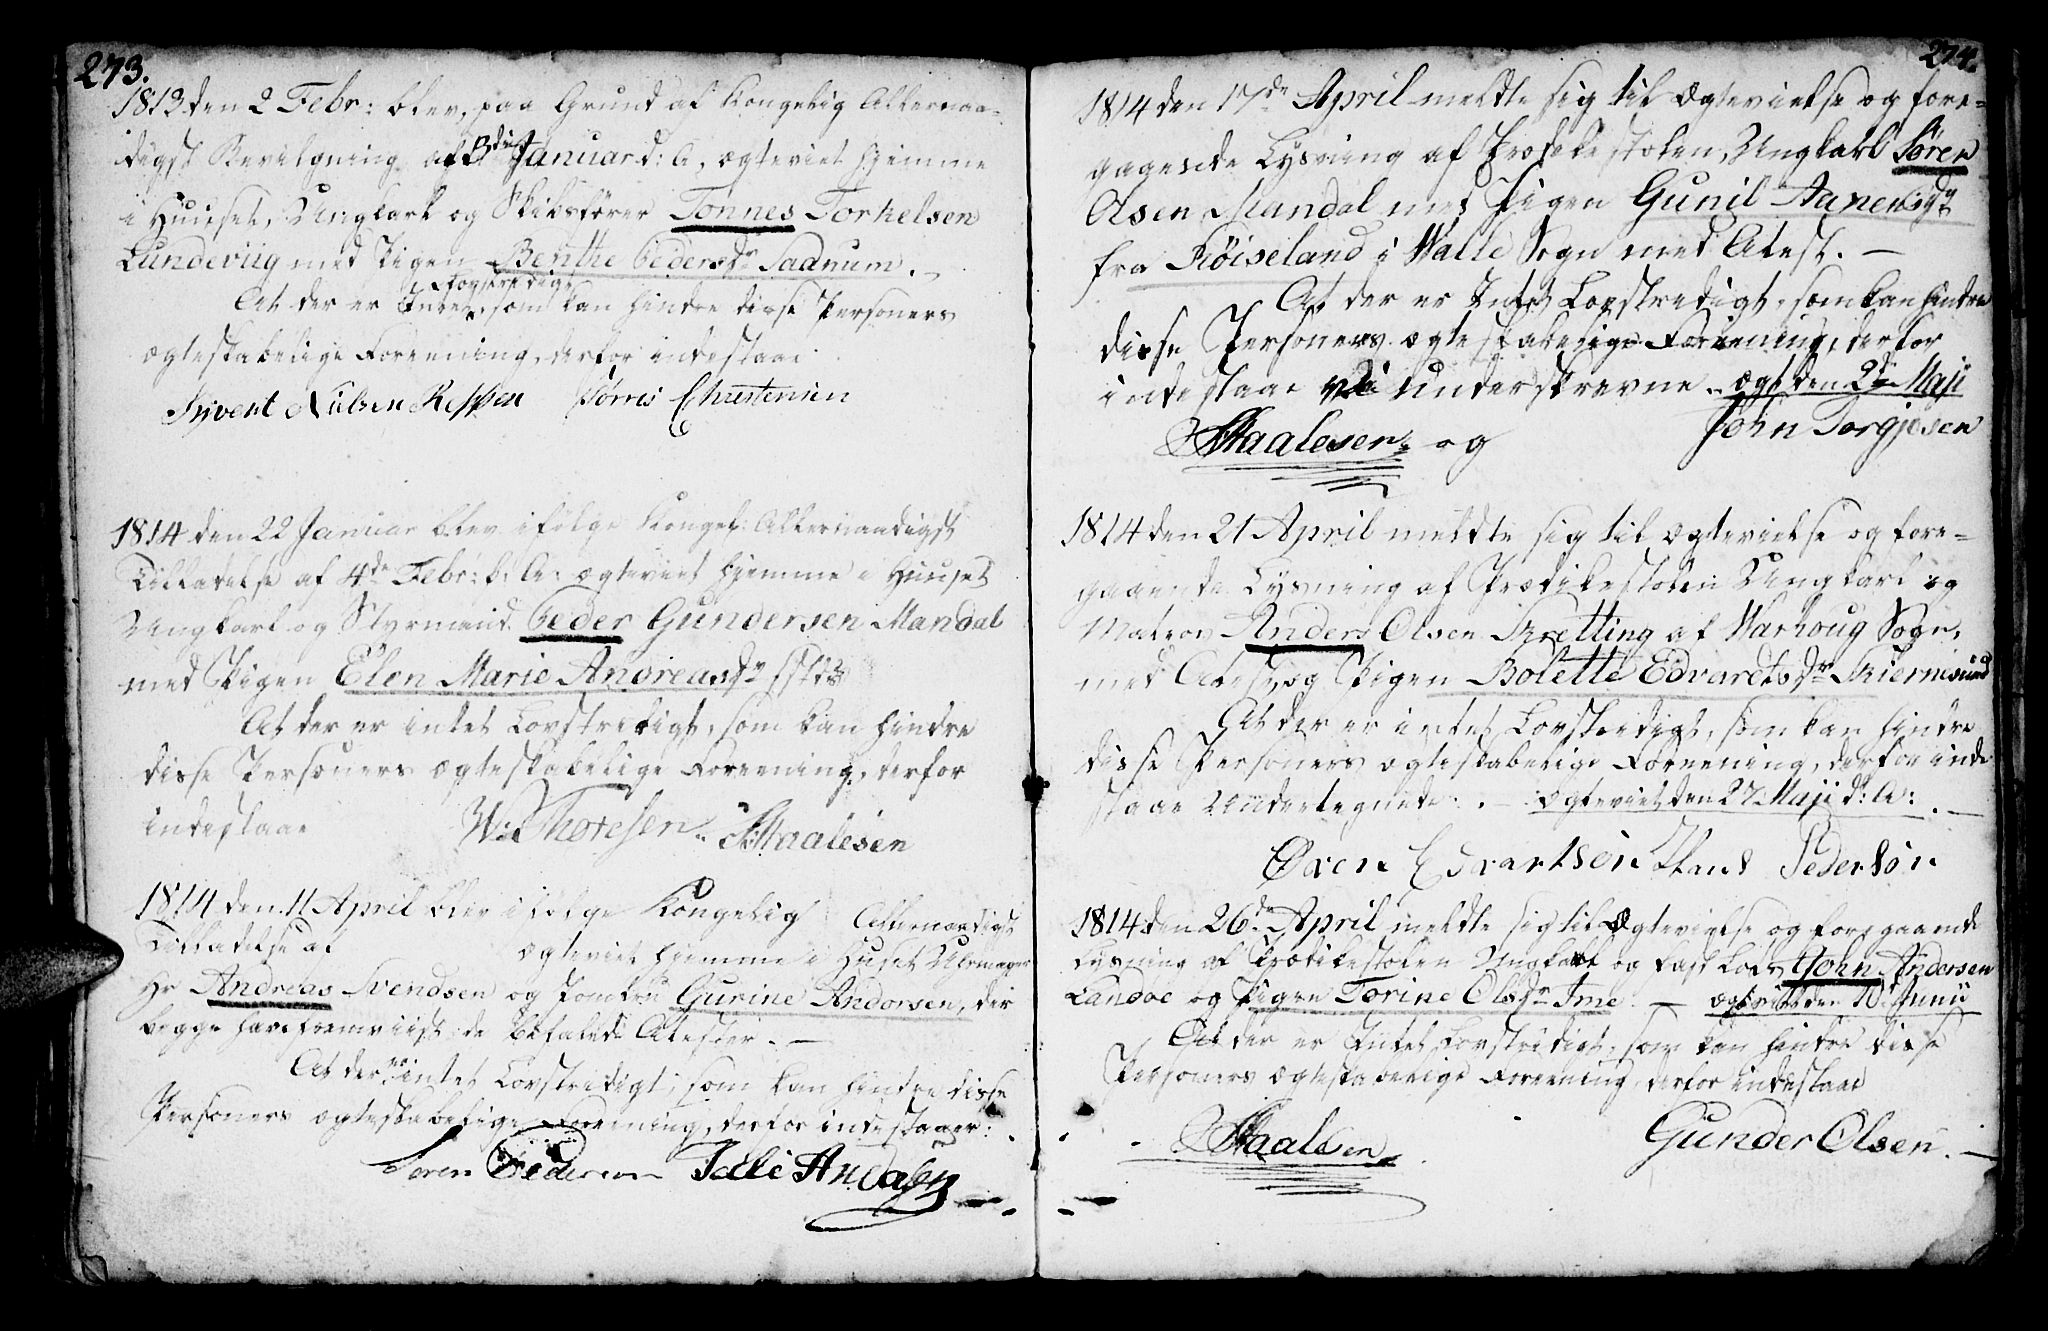 273.
1813 den 2 Febr: blev, paa Grund af Kongelig Allernaa-
digst Bevilgning af 3die Januar d: A, ægteviet hjemme
i Huuset, Ungkarl og Skibsfører Tønnes Torkelsen
Lundeviig med Pigen Benthe Pedersdr Sadnum. -
At der er Intet Lovstridigt, som kan hindre disse Personers
ægteskabelige Foreening, derfor indestaae
Sivert Nielsen Christensen
1814 den 22 Januar blev ifølge Kongel: Allernaadigst
Tilladelse af 4de Febr: d: A: ægteviet hjemme i Huuset
Ungkarl og Styrmand Peder Gundersen Mandal
med Pigen Elen Marie Andreasdr
At der er intet Lovstridigt, som kan hindre
disse Personers ægteskabelige Foreening, derfor
indestaae W: Thoresen. Staalesen
1814 den 11 April blev ifølge Kongelig Allernaadigst
Tilladelse af ægteviet hjemme i Huset Uhrmager
Hr Andreas Svendsen og Jomfru Gurine Andorsen, der
begge have fremviist de befalede Atester. -
At der er intet Lovstridigt, som kan hindre disse
Personers ægteskabelige Foreening, derfor indestaaer:
Søren Pedersen
274.
1814 den 17de April meldte sig til Ægtevielse og fore-
gagende Lysning af Prædikestolen, Ungkarl Søren
Olsen Mandal med Pigen Gunil Aanensdr
fra Røiseland i Halle Sogn med Atest. -
At der er Intet Lovstridigt, som kan hindre
disse Personers ægteskabelige Foreening, derfor
indestaae vi underskrevne. ægt. den 2den Maji
Staalesen og John Torgjesen
1814 den 21 April meldte sig til Ægtevielse og fore-
gaaende Lysning af Prædikestolen Ungkarl og
Matros Anders Olsen Kretting af Warhoug Sogn,
med Atest, og Pigen Bolette Edvardtsdr Skiernsund
At der er intet Lovstridigt, som kan hindre
disse Personers ægteskabelige Foreening, derfor inde
staae Undertegnede. - ægteviet den 27 Maji d: A: . -
Øven Edvartsøn Pedersøn
1814 den 26de April meldte sig til Ægtevielse og foregaaende
Lysning af Prædikestolen Ungkarl og fast Lods John Andersen
Landøe og Pigen Torine Olsdr Ime. - ægteviet den 10 Junii
At der er Intet Lovstridigt, som kan hindre disse
Personers ægteskabelige Foreening, derfor indestaae
Staalesen Gunder Olsen. -